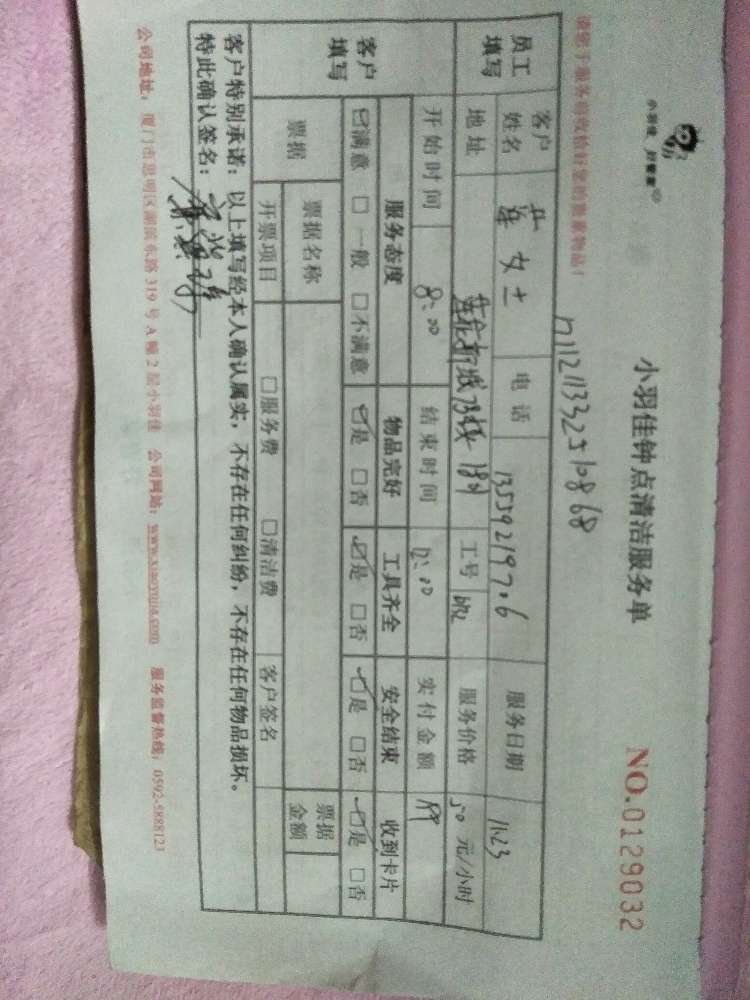 小羽佳 好管家
小羽佳钟点清洁服务单
NO.0129032
171121133251 0868
员工填写 客户姓名 女士 电话 13559219706 服务日期 11.23
地址 工号 服务价格 50 元/小时
开始时间 8:00 结束时间 12:00 实付金额 199
客户填写 服务态度 物品完好 工具齐全 安全结束 收到卡片
☑满意 □一般 □不满意 ☑是 □否 ☑是 □否 ☑是 □否 ☑是 □否
票据 票据名称 票据金额
开票项目 □服务费 □清洁费 客户签名
客户特别承诺：以上填写经本人确认属实，不存在任何纠纷，不存在任何物品损坏。
特此确认签名：
公司地址：厦门市思明区湖滨东路 319 号 A 幢 2 层小羽佳 公司网站：www.xiaoyujia.com 服务监督热线：0592-5888123